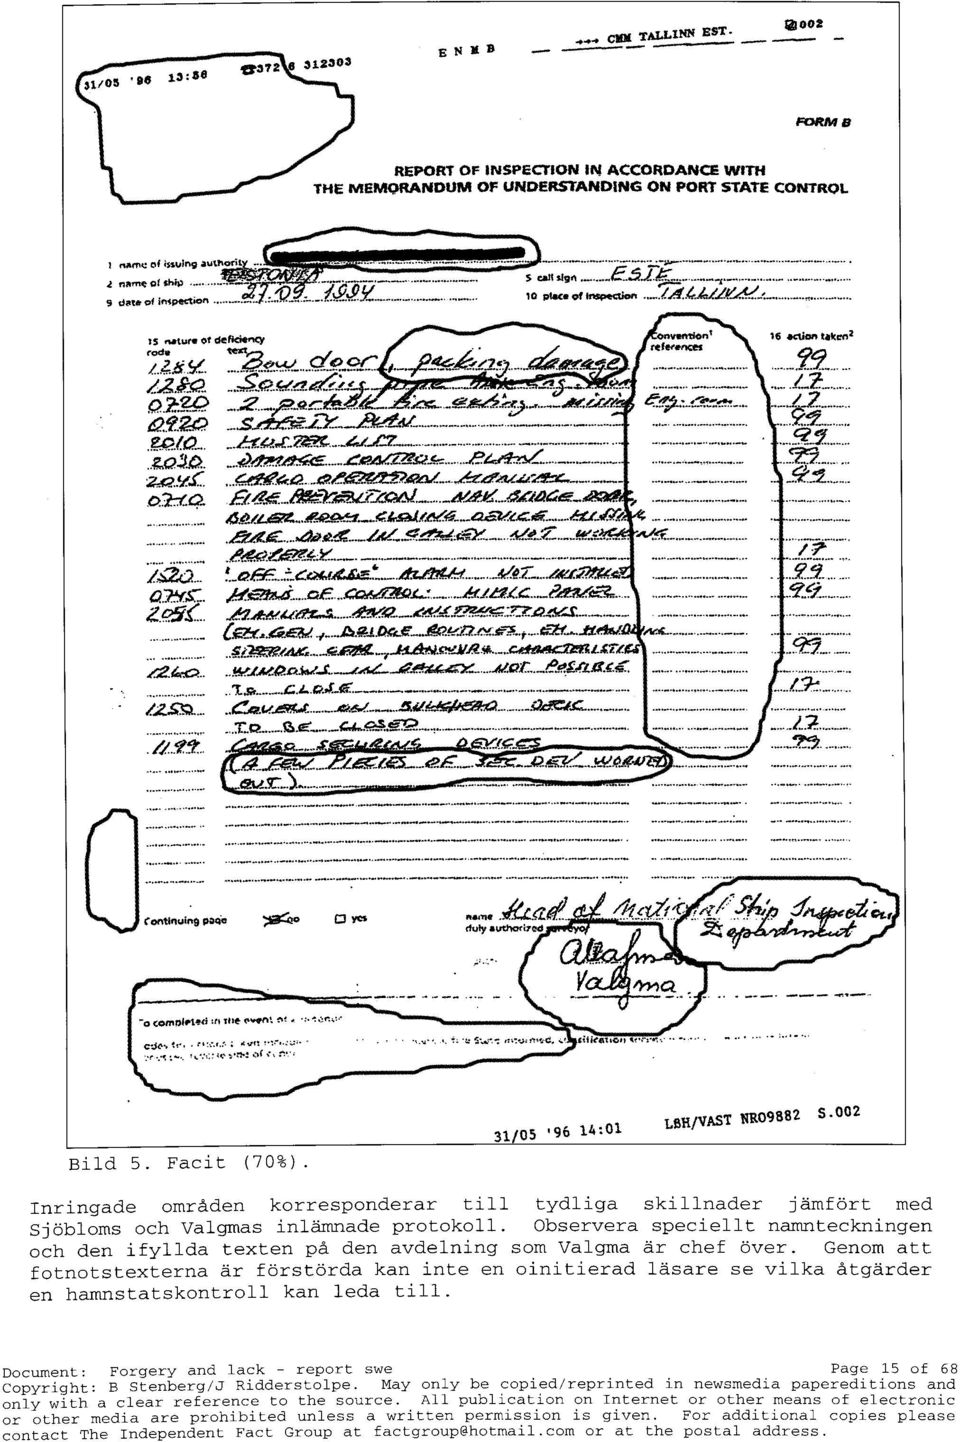 E N M B --- CMM TALLINN EST. 002
31/05 '96 13:56 ☎372 6 312303
FORM B
REPORT OF INSPECTION IN ACCORDANCE WITH
THE MEMORANDUM OF UNDERSTANDING ON PORT STATE CONTROL
1 name of issuing authority
2 name of ship ESTONIA 5 call sign ESTE
9 date of inspection 27.09.1994 10 place of inspection TALLINN.
15 nature of deficiency Convention¹ 16 action taken²
code text references
1284 Bow door, packing damage 99
1280 Sounding pipe Eng. room 17
0720 2 portable fire exting. missing Eng. room 17
0920 SAFETY PLAN 99
2010 MUSTER LIST 99
2030 DAMAGE CONTROL PLAN 99
2045 CARGO OPERATION MANUAL 99
0710 FIRE PREVENTION NAV. BRIDGE DOOR,
BOILER ROOM CLOSING DEVICE MISSING
FIRE DOOR IN GALLEY NOT WORKING
PROPERLY 17
1520 "OFF-COURSE" ALARM NOT INSTALLED 99
0745 MEANS OF CONTROL: MIMIC PANEL 99
2055 MANUALS AND INSTRUCTIONS
(EM.GEN, BRIDGE ROUTINES, EM. HANDLING
STEERING GEAR, MANOUVR. CHARACTERISTICS 99
1260 WINDOWS IN GALLEY NOT POSSIBLE
TO CLOSE 17
1250 COVERS ON BULKHEAD DECK
TO BE CLOSED 17
1199 CARGO SECURING DEVICES 99
(A FEW PIECIES OF SEC DEV WORNED
OUT)
Continuing page no ☐ yes name Head of National Ship Inspection
duly authorized surveyor Department
Valgma
To completed in the event of a
31/05 '96 14:01 LBH/VAST NR09882 S.002
Bild 5. Facit (70%).
Inringade områden korresponderar till tydliga skillnader jämfört med
Sjöbloms och Valgmas inlämnade protokoll. Observera speciellt namnteckningen
och den ifyllda texten på den avdelning som Valgma är chef över. Genom att
fotnotstexterna är förstörda kan inte en oinitierad läsare se vilka åtgärder
en hamnstatskontroll kan leda till.
Document: Forgery and lack - report swe Page 15 of 68
Copyright: B Stenberg/J Ridderstolpe. May only be copied/reprinted in newsmedia papereditions and
only with a clear reference to the source. All publication on Internet or other means of electronic
or other media are prohibited unless a written permission is given. For additional copies please
contact The Independent Fact Group at factgroup@hotmail.com or at the postal address.